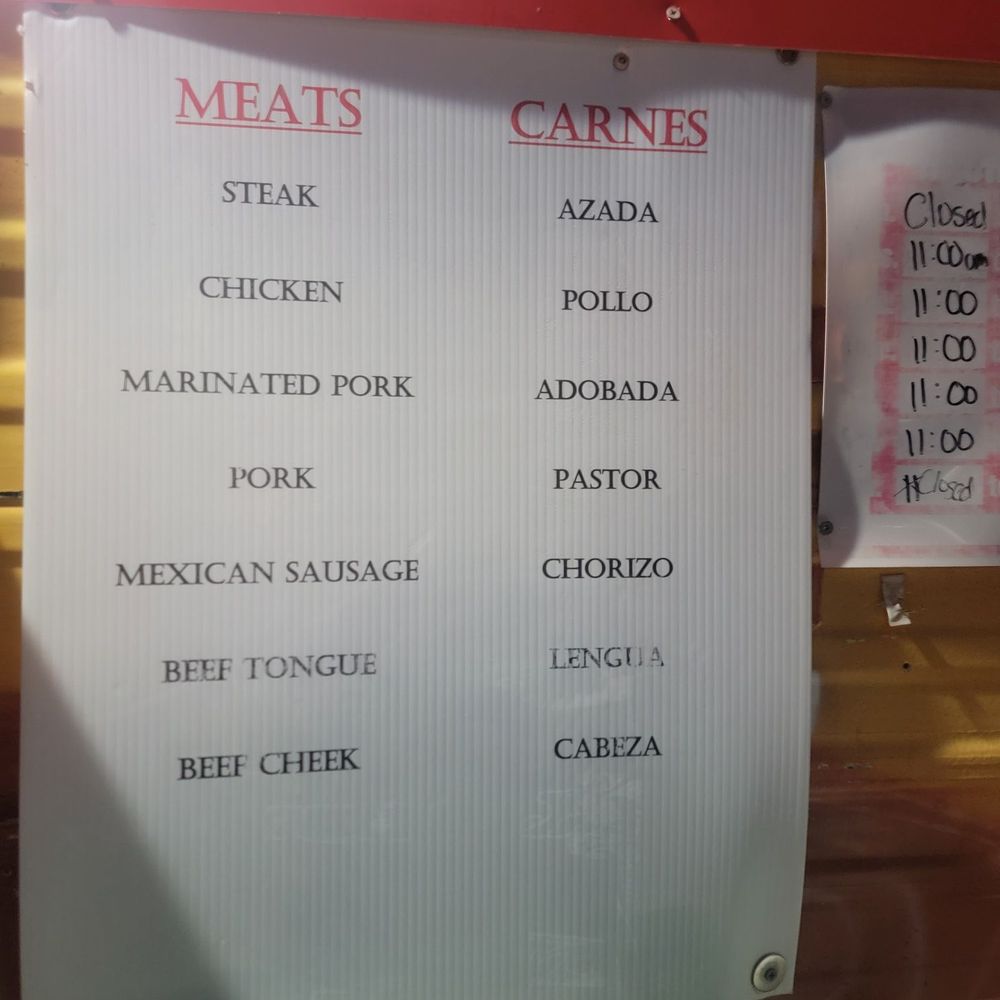 MEATS
STEAK
CHICKEN
MARINATED PORK
PORK
MEXICAN SAUSAGE
BEEF TONGUE
BEEF CHEEK
CARNES
AZADA
POLLO
ADOBADA
PASTOR
CHORIZO
LENGUA
CABEZA
Closed
11:00am
11:00
11:00
11:00
11:00
Closed